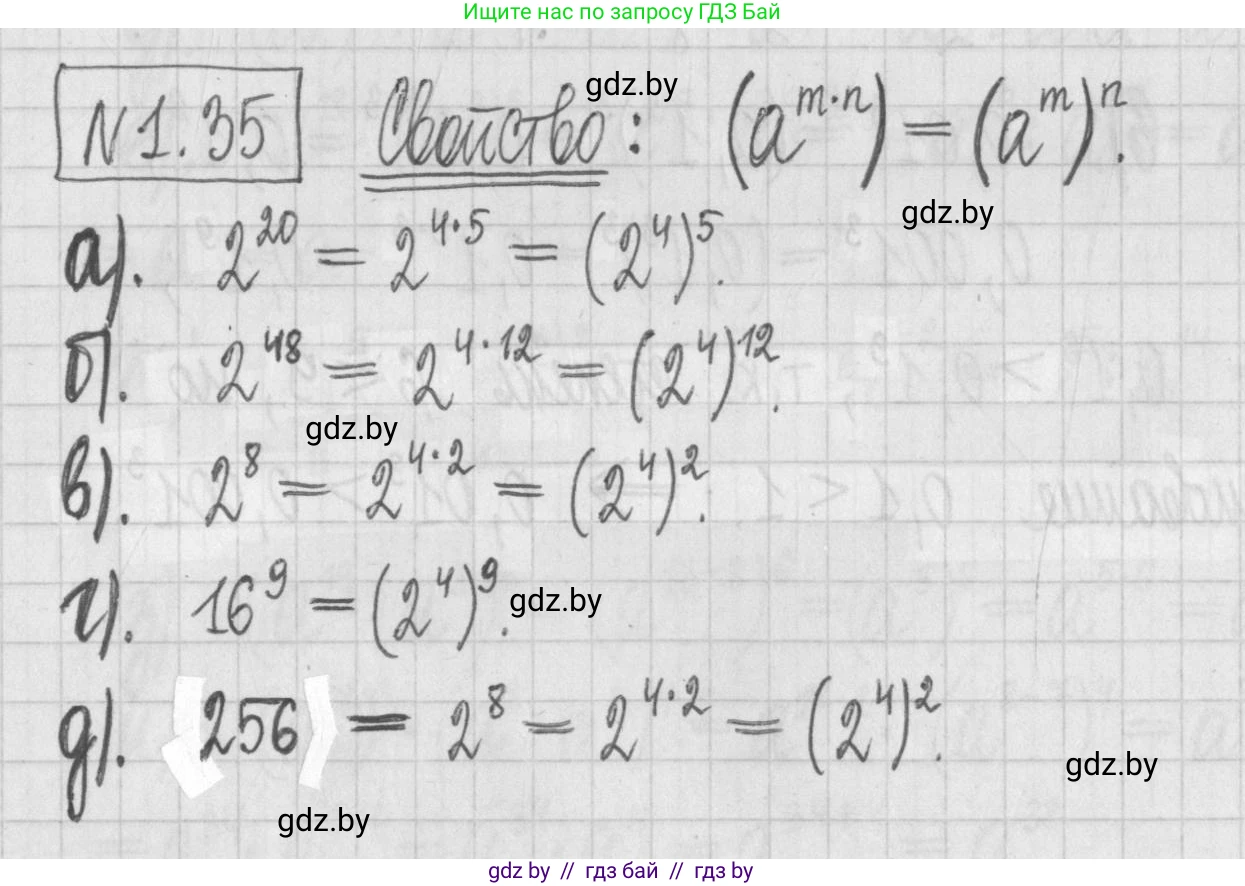 Ищите нас по запросу ГДЗ Бай
N 1.35 Свойство: (a^{m·n}) = (a^m)^n.
gdz.by
gdz.by
а). 2^{20} = 2^{4·5} = (2^4)^5.
б). 2^{48} = 2^{4·12} = (2^4)^{12}.
gdz.by
в). 2^8 = 2^{4·2} = (2^4)^2.
г). 16^9 = (2^4)^9.
gdz.by
д). 256 = 2^8 = 2^{4·2} = (2^4)^2.
gdz.by
gdz.by
gdz by // гдз бай // гдз by